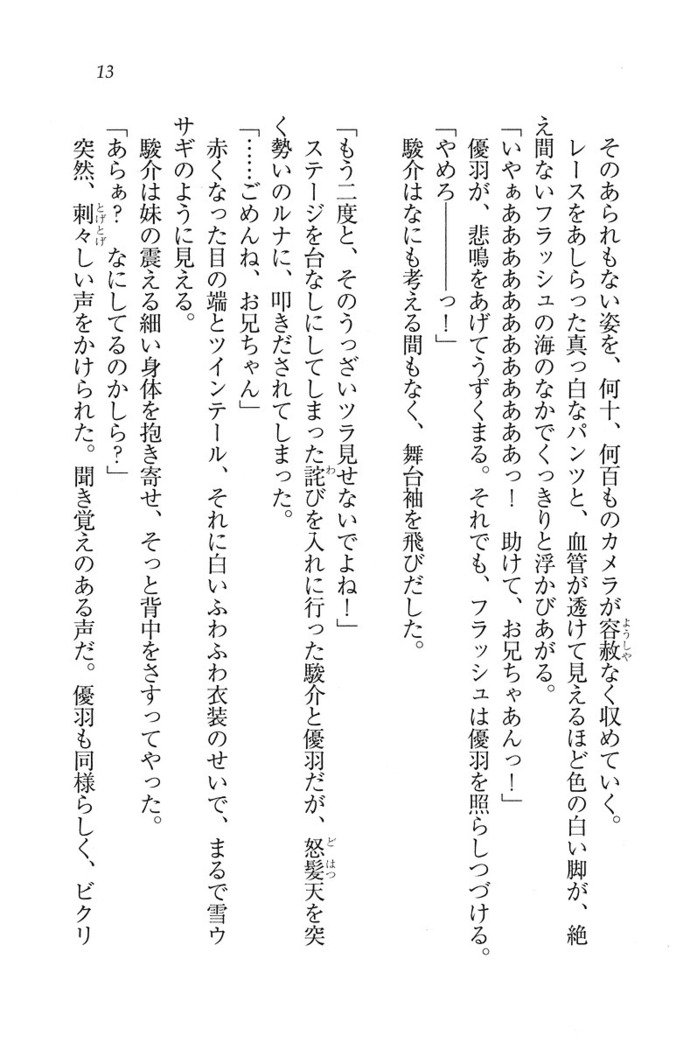 13
そのあられもない姿を、何十、何百ものカメラが容赦なく収めていく。
レースをあしらった真っ白なパンツと、血管が透けて見えるほど色の白い脚が、絶
え間ないフラッシュの海のなかでくっきりと浮かびあがる。
「いやぁあああああああああああああっ！　助けて、お兄ちゃあんっ！」
優羽が、悲鳴をあげてうずくまる。それでも、フラッシュは優羽を照らしつづける。
「やめろ――――っ！」
駿介はなにも考える間もなく、舞台袖を飛びだした。
「もう二度と、そのうっざいツラ見せないでよね！」
ステージを台なしにしてしまった詫びを入れに行った駿介と優羽だが、怒髪天を突
く勢いのルナに、叩きだされてしまった。
「……ごめんね、お兄ちゃん」
赤くなった目の端とツインテール、それに白いふわふわ衣装のせいで、まるで雪ウ
サギのように見える。
駿介は妹の震える細い身体を抱き寄せ、そっと背中をさすってやった。
「あらぁ？　なにしてるのかしら？」
突然、刺々しい声をかけられた。聞き覚えのある声だ。優羽も同様らしく、ビクリ